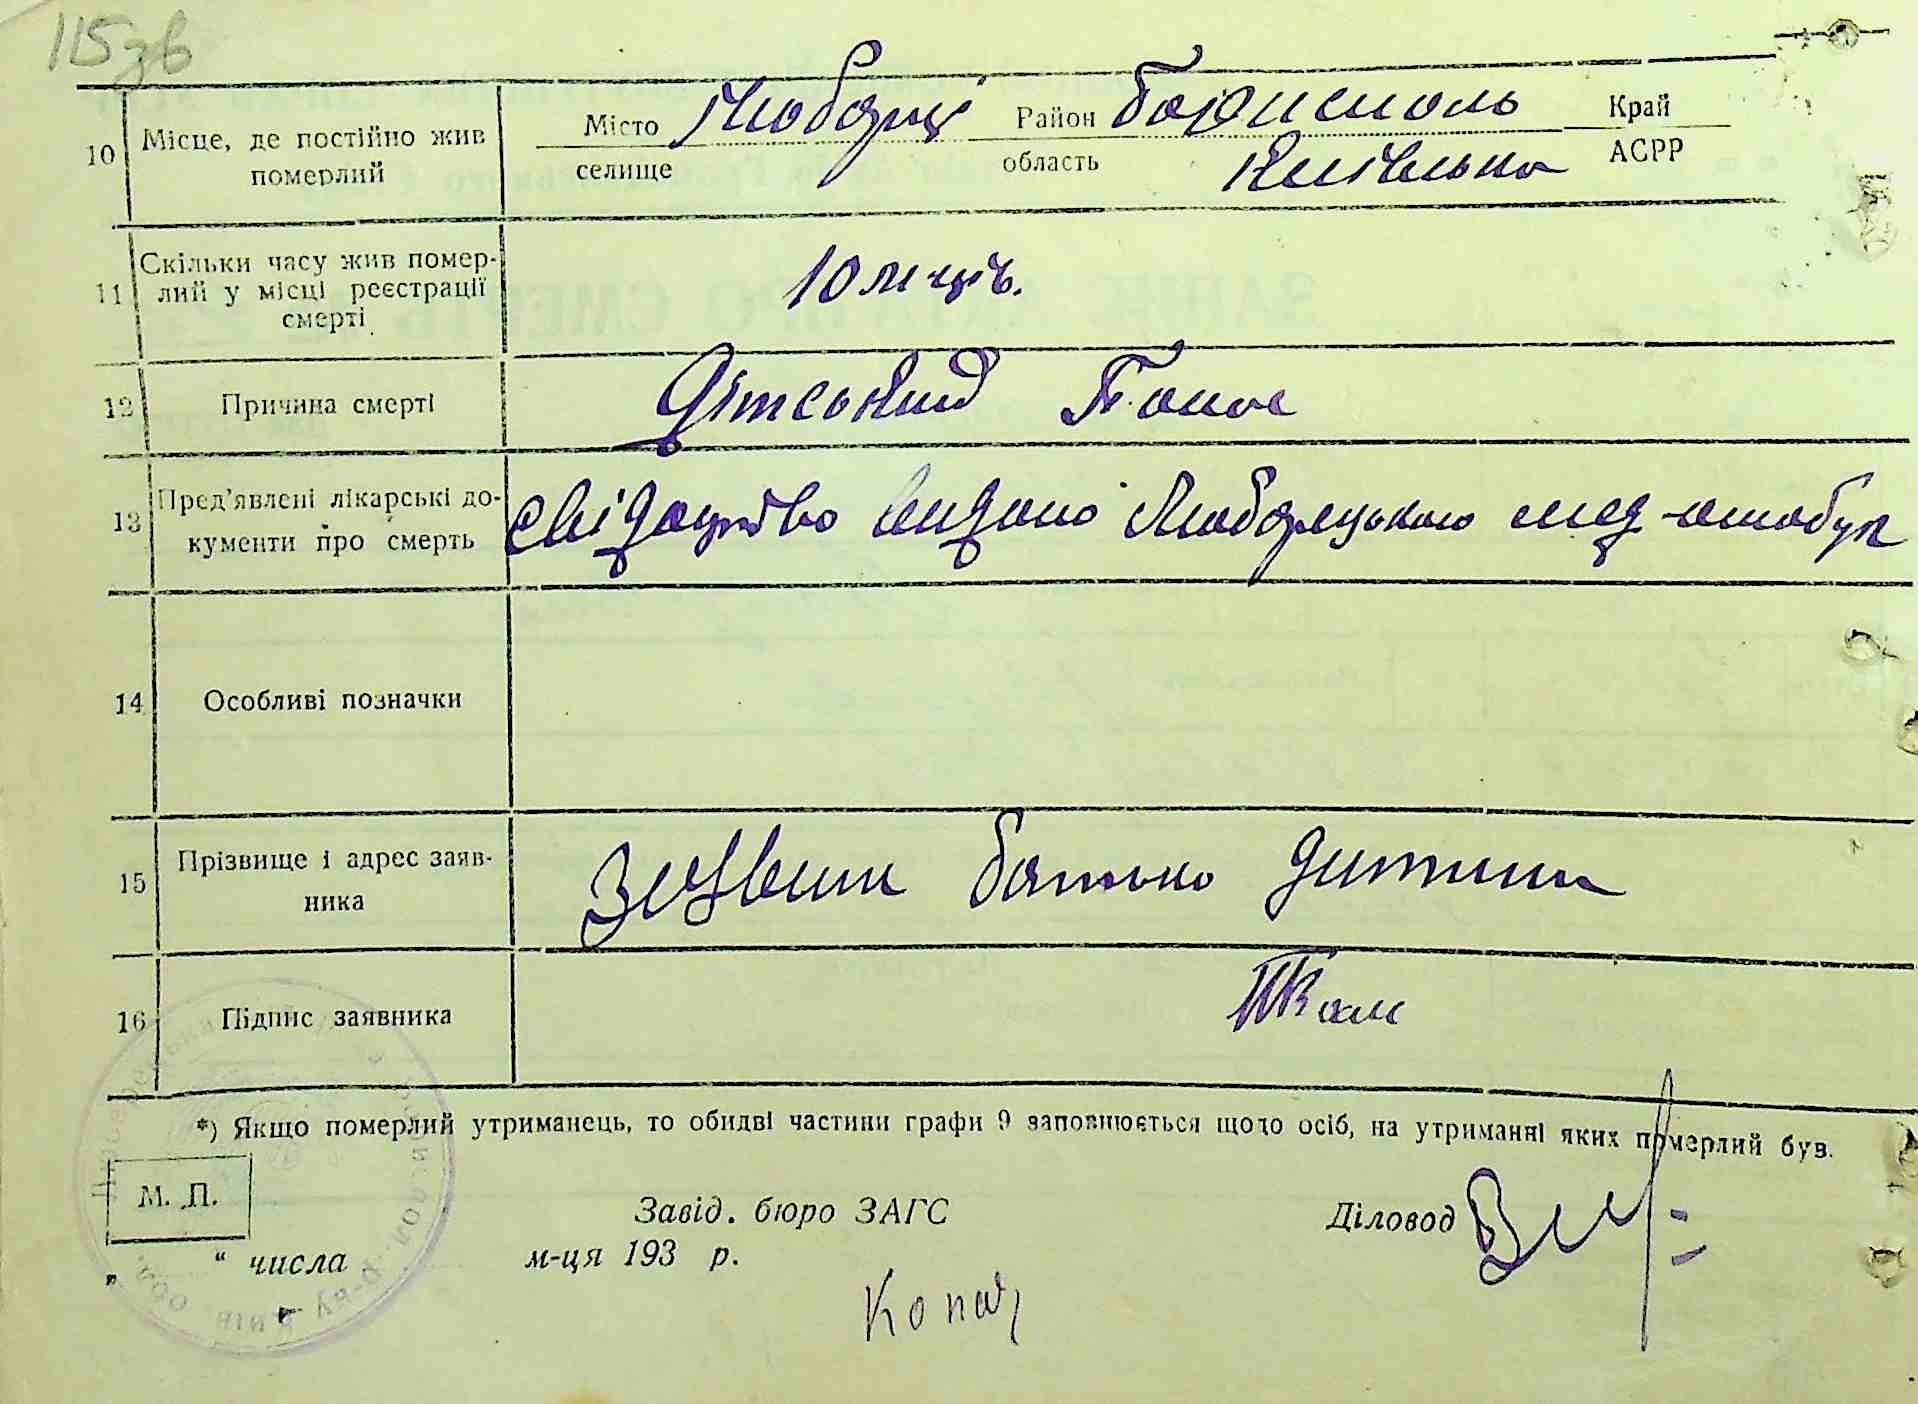 115зв
10 Місце, де постійно жив померлий
Місто Любарці Район Бориспол
селище область Київська
Край
АСРР
11 Скільки часу жив помер-
лий у місці реєстрації
смерті
10 м-ців.
12 Причина смерті
Дітський Понос
13 Пред'явлені лікарські до-
кументи про смерть
свідоцтво видано Любарецькою мед-амбул
14 Особливі позначки
15 Прізвище і адрес заяв-
ника
батько дитини
16 Підпис заявника
*) Якщо померлий утриманець, то обидві частини графи 9 заповнюється щодо осіб, на утриманні яких померлий був.
М. П.
Завід. бюро ЗАГС
Діловод
„ “ числа м-ця 193 р.
Копач